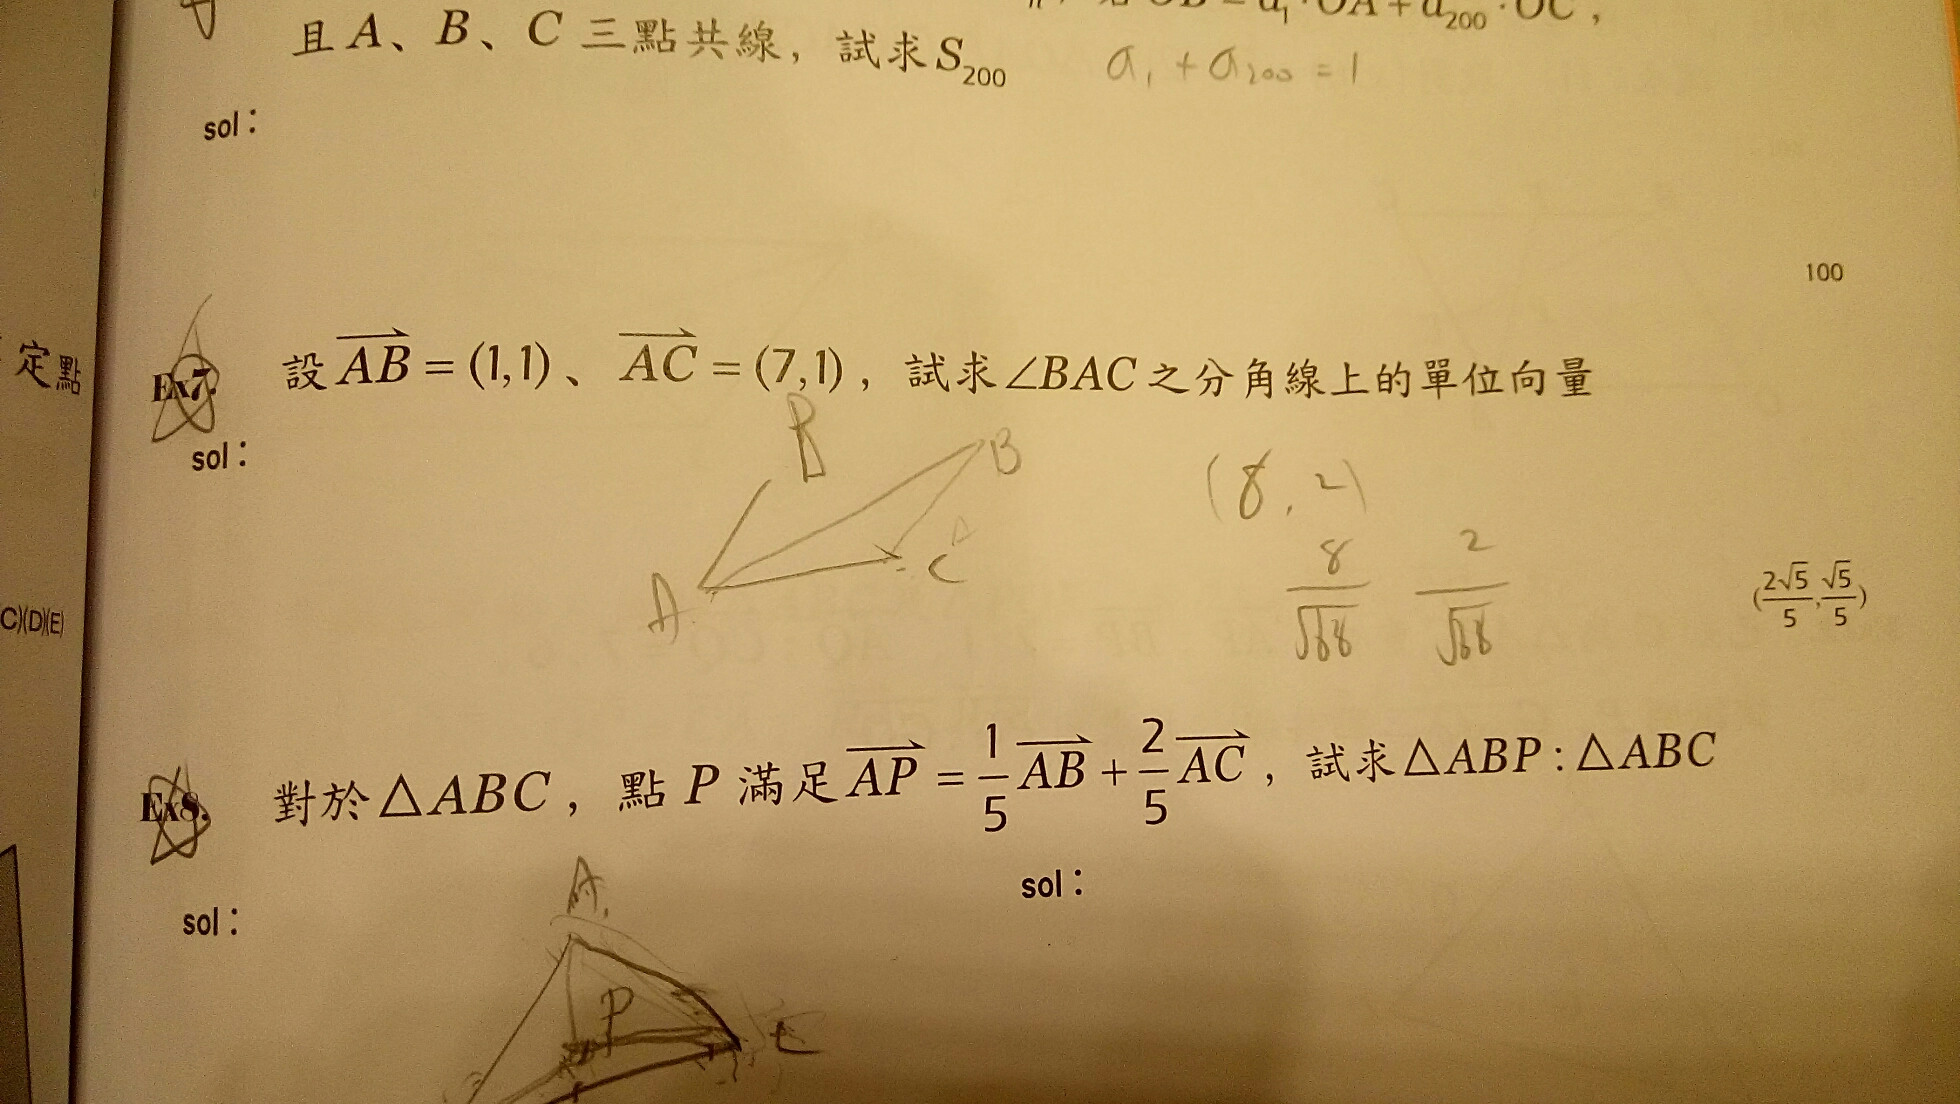 OB = a₁·OA + a₂₀₀·OC，
且 A、B、C 三點共線，試求 S₂₀₀
a₁ + a₂₀₀ = 1
sol：
100
定點
Ex7.
設 AB = (1,1)、AC = (7,1)，試求∠BAC之分角線上的單位向量
sol：
B
B
A
C
(8, 2)
8/√68 2/√68
(2√5/5, √5/5)
C)(D)(E)
Ex8.
對於△ABC，點 P 滿足 AP = 1/5 AB + 2/5 AC，試求△ABP : △ABC
sol：
sol：
A
P